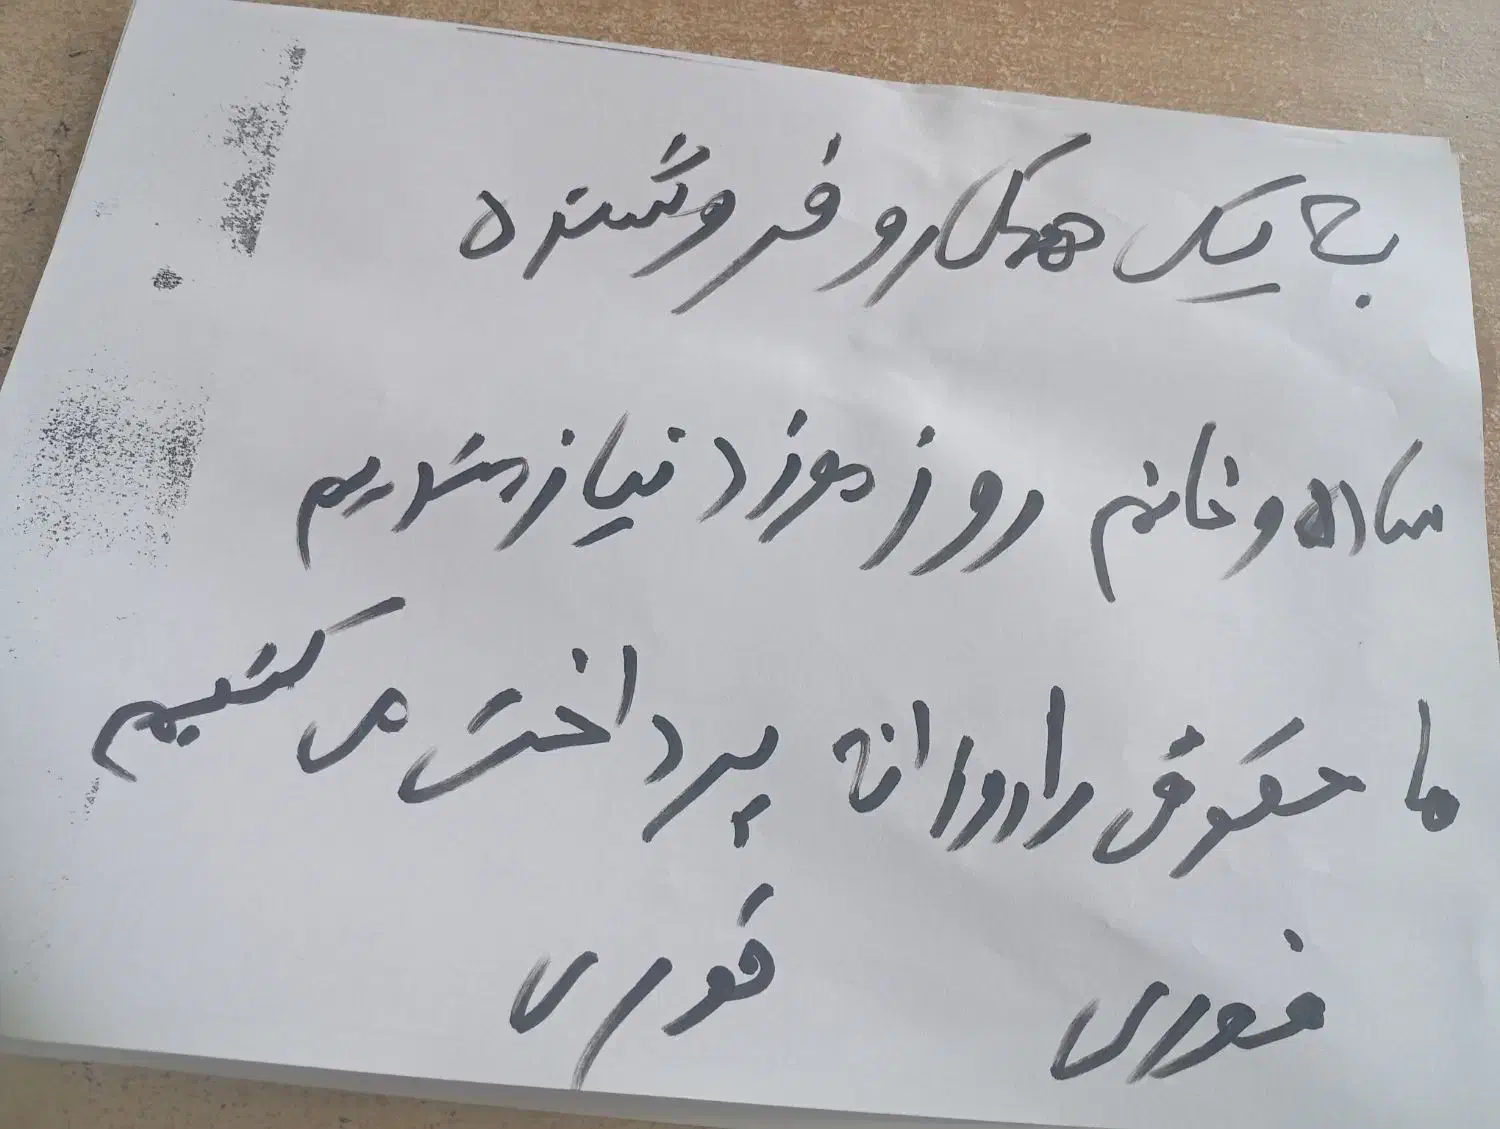 به یک همکار و فروشنده
ساده و خانم روز مزد نیازمندیم
ما حقوق را روزانه پرداخت می کنیم
فوری فوری